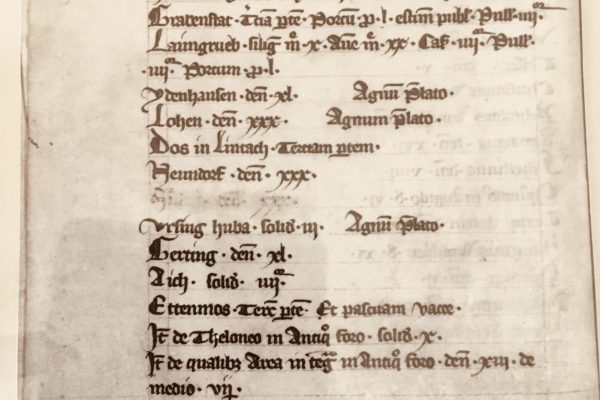 Grabenstat · Tciā ptē · Porcū · p · l · estim̄ publ̄ · Pull̄ · iiijor
Laimgrueb · siliḡ · m̊ · x · Aue m̊ · xx · Cas̄ · iiijor · Pull̄ ·
· iiijor · Porcum · p · l ·
Ydenhausen · den̄ · xl · Agnū plato ·
Lohen · den̄ · xxx · Agnum plato ·
Dos in Lintach · Terciam ptem ·
Heundorf · den̄ · xxx ·
Ursing huba · solid̄ · iij · Agnū plato ·
Gerting · den̄ · xl ·
Aich · solid̄ · iiijor ·
Ettenmos · Terc̄ ptē · Et pascuam vacce ·
It̄ de Theloneo in Antiq̊ foro · solid̄ · x ·
It̄ de qualibȝ Area in Antiq̊ foro · den̄ · xiij · de
medio · vij ·